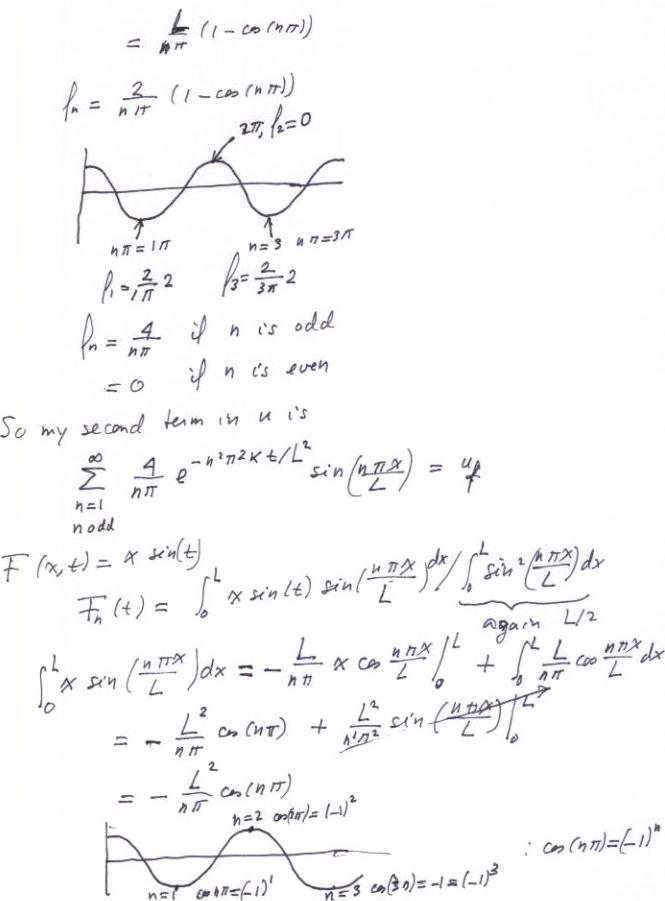 = L/nπ (1 - cos(nπ))
fn = 2/nπ (1 - cos(nπ))
2π, f2=0
nπ = 1π
n=3 nπ=3π
f1 = 2/1π 2
f3 = 2/3π 2
fn = 4/nπ if n is odd
= 0 if n is even
So my second term in u is
∞ ∑ n=1 n odd 4/nπ e^-n²π²Kt/L² sin(nπx/L) = uf
F(x,t) = x sin(t)
Fn(t) = ∫0^L x sin(t) sin(nπx/L) dx / ∫0^L sin²(nπx/L) dx
again L/2
∫0^L x sin(nπx/L) dx = - L/nπ x cos nπx/L |0^L + ∫0^L L/nπ cos nπx/L dx
= - L²/nπ cos(nπ) + L²/n²π² sin(nπx/L) |0^L
= - L²/nπ cos(nπ)
n=2 cos(2π) = (-1)²
: cos(nπ) = (-1)^n
n=1 cos nπ = (-1)¹
n=3 cos(3π) = -1 = (-1)³